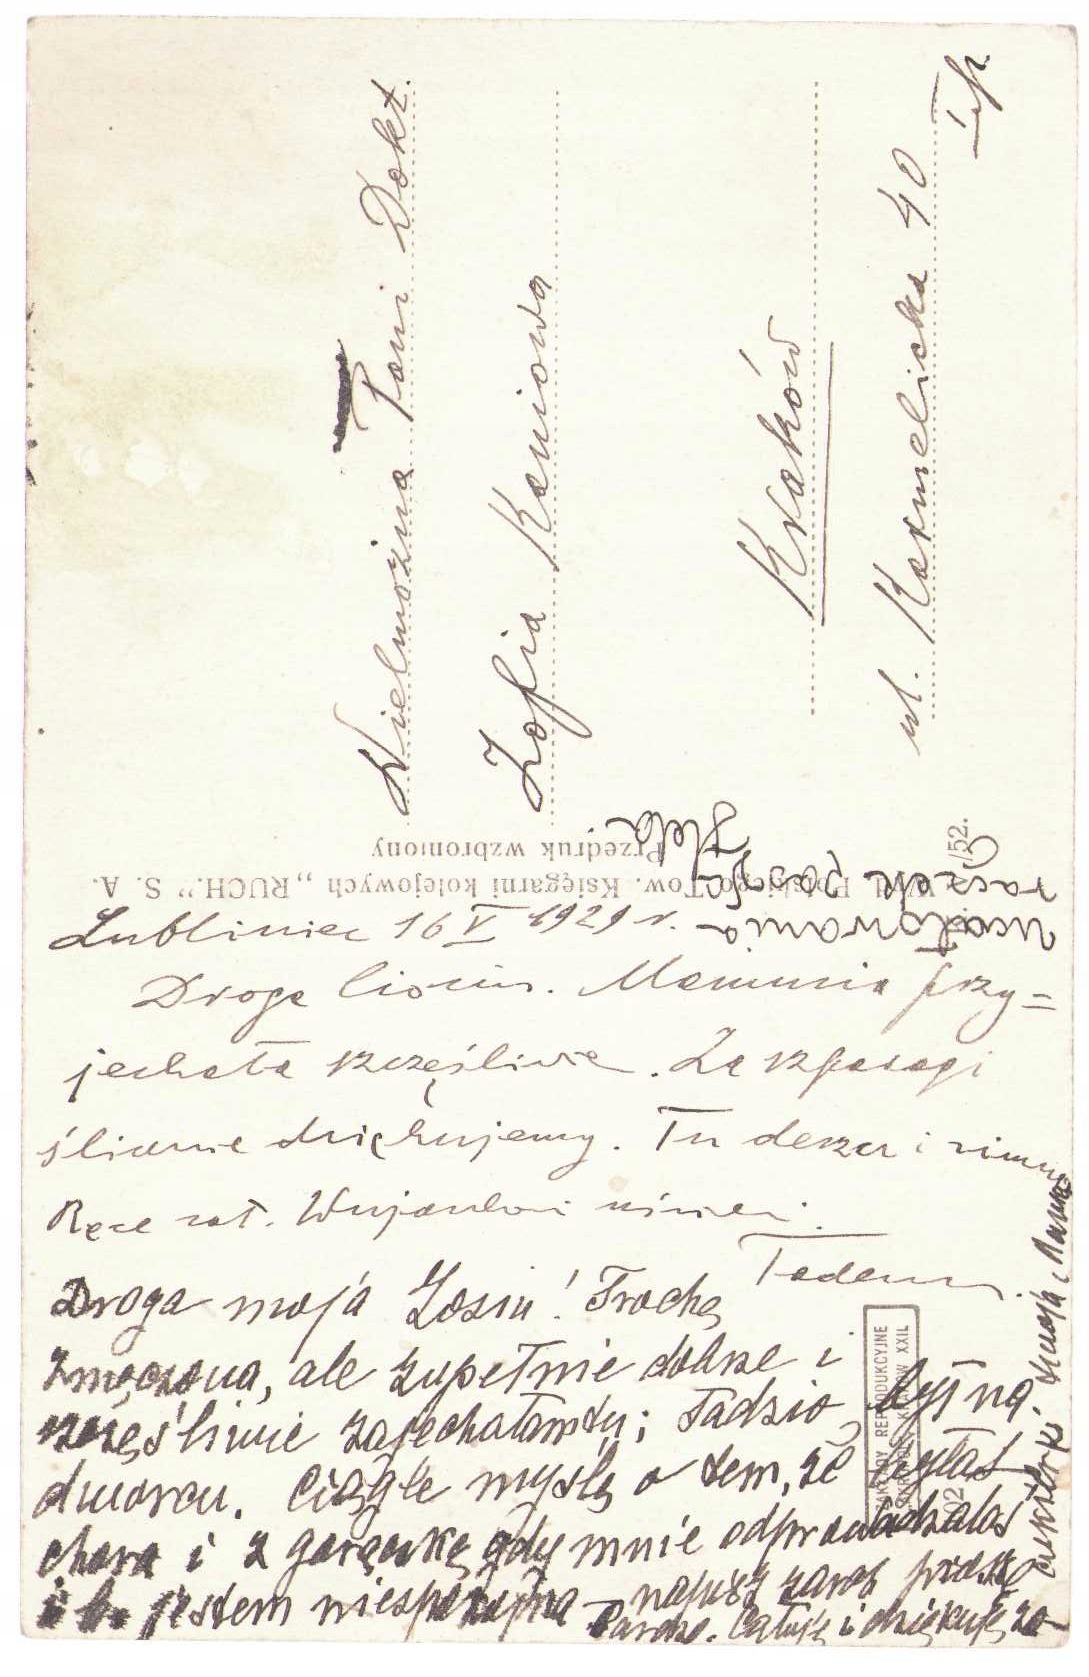 Wielmożna Pani Dokt.
Zofia Kaniowa
Kraków
ul. Karmelicka 40
Ip.
Wyd. Polskiego Tow. Księgarni kolejowych „RUCH” S. A.
Przedruk wzbroniony
52.
Lubliniec 16 V 1929 r.
Droga Ciociu. Mamusia przy=
jechała szczęśliwie. Za szparagi
ślicznie dziękujemy. Tu deszcz i zimno
Ręce cał. Wujankowi
Tadeusz.
Droga moja Zosiu! Trochę
zmęczona, ale zupełnie dobrze i
szczęśliwie zajechałam tu; Tadzio był na
dworcu. Ciągle myślę o tem, że byłaś
chora i z gorączką gdy mnie odprowadzałaś
i b. jestem niespokojna – napisz zaraz proszę
bardzo. Całuję i dziękuję za
cukierki
ucałowania
rączek
Hela
ZAKŁADY REPRODUKCYJNE
KRAKÓW XXII.